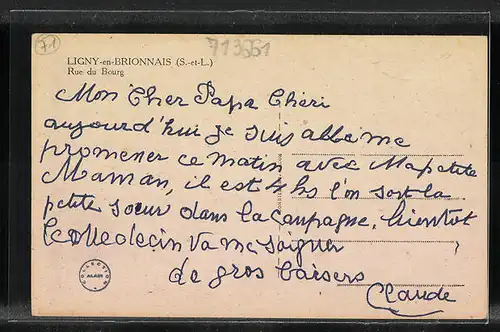 71
713551
LIGNY-en-BRIONNAIS (S.-et-L.)
Rue du Bourg
Mon Cher Papa Chéri
aujourd'hui je suis allé me
promener ce matin avec Ma petite
Maman, il est 4 hs l'on sort la
petite soeur dans la Campagne, bientot
le Medecin va me soigner
de gros baisers
Claude
COLLECTION